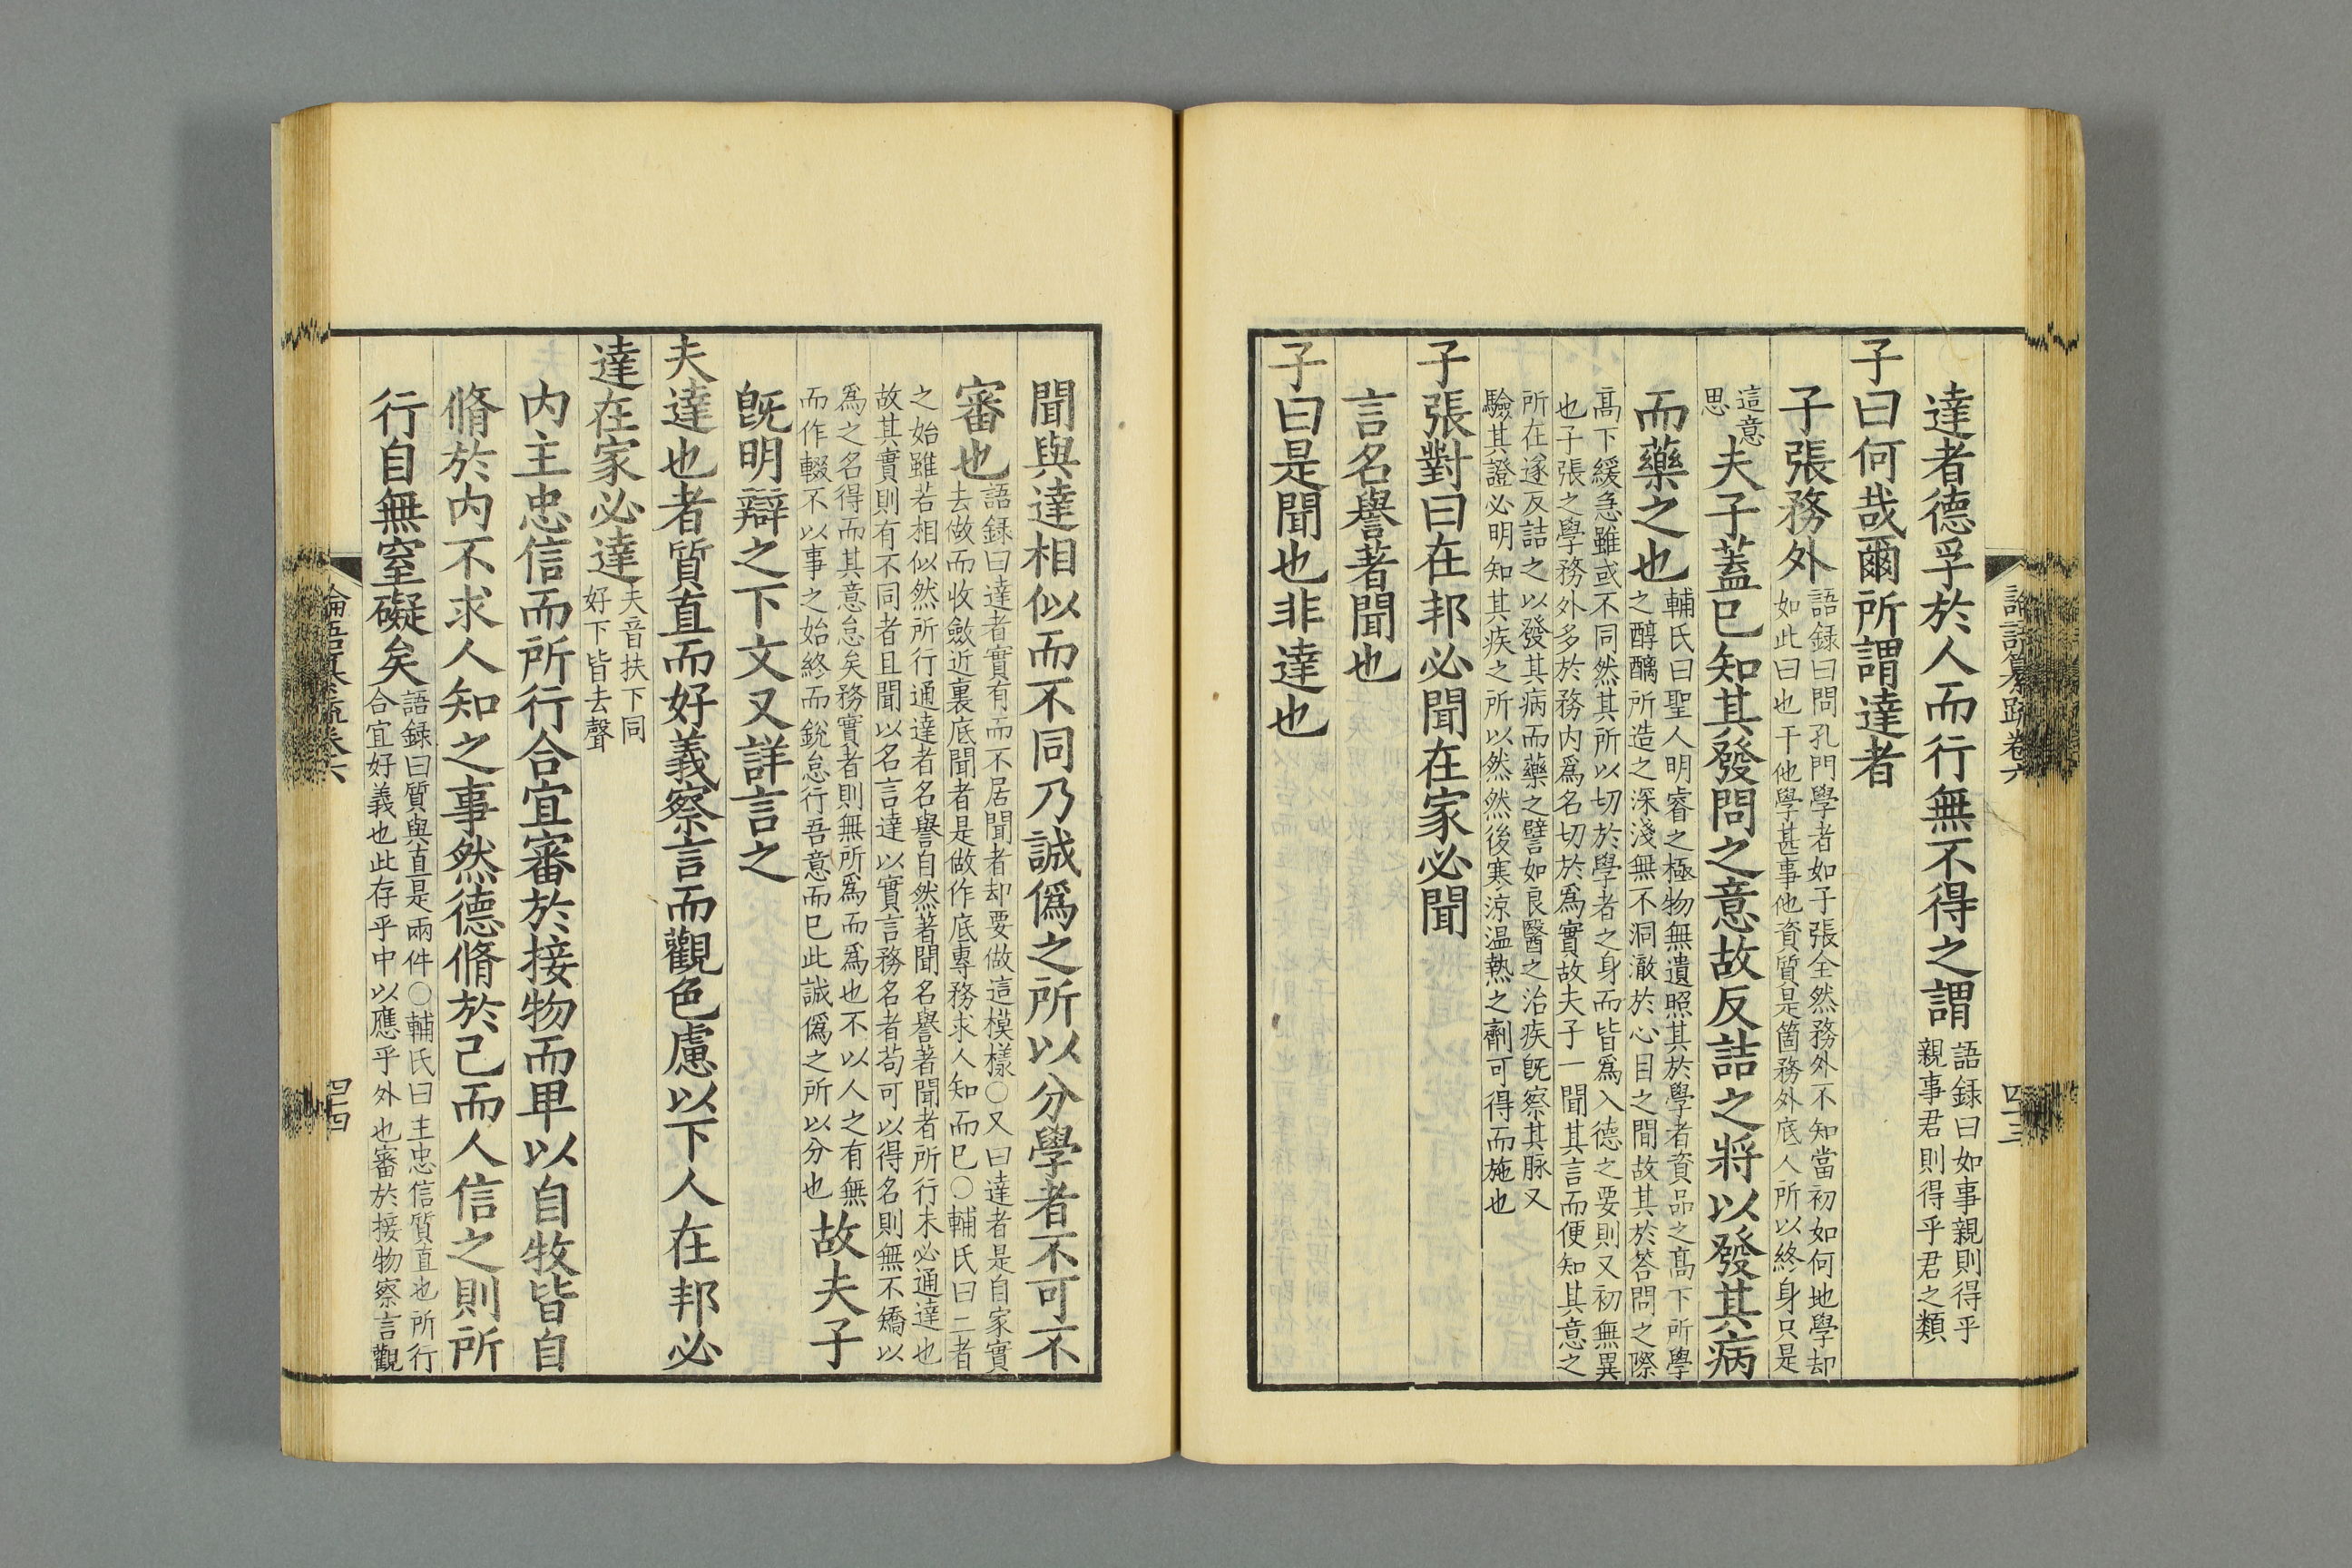 達者德孚於人而行無不得之謂語録曰如事親則得乎
親事君則得乎君之類
子曰何哉爾所謂達者
子張務外語録曰問孔門學者如子張全然務外不知當初如何地學却
如此曰也干他學甚事他資質是箇務外底人所以終身只是
這意
思夫子蓋已知其發問之意故反詰之將以發其病
而藥之也輔氏曰聖人明睿之極物無遺照其於學者資品之髙下所學
之醇醨所造之深淺無不洞澈於心目之間故其於答問之際
髙下緩急雖或不同然其所以切於學者之身而皆爲入德之要則又初無異
也子張之學務外多於務内爲名切於爲實故夫子一聞其言而便知其意之
所在遂反詰之以發其病而藥之譬如良醫之治疾既察其脉又
驗其證必明知其疾之所以然然後寒涼温熱之劑可得而施也
子張對曰在邦必聞在家必聞
言名譽著聞也
子曰是聞也非達也
論語纂疏卷六
四十三
聞與達相似而不同乃誠僞之所以分學者不可不
審也語録曰達者實有而不居聞者却要做這模様○又曰達者是自家實
去做而收斂近裏底聞者是做作底專務求人知而已○輔氏曰二者
之始雖若相似然所行通達者名譽自然著聞名譽著聞者所行未必通達也
故其實則有不同者且聞以名言達以實言務名者苟可以得名則無不矯以
爲之名得而其意怠矣務實者則無所爲而爲也不以人之有無
而作輟不以事之始終而銳怠行吾意而已此誠僞之所以分也故夫子
旣明辯之下文又詳言之
夫達也者質直而好義察言而觀色慮以下人在邦必
達在家必達夫音扶下同
好下皆去聲
内主忠信而所行合宜審於接物而卑以自牧皆自
脩於内不求人知之事然德脩於己而人信之則所
行自無窒礙矣語録曰質與直是兩件○輔氏曰主忠信質直也所行
合宜好義也此存乎中以應乎外也審於接物察言觀
論語纂疏卷六
四十四